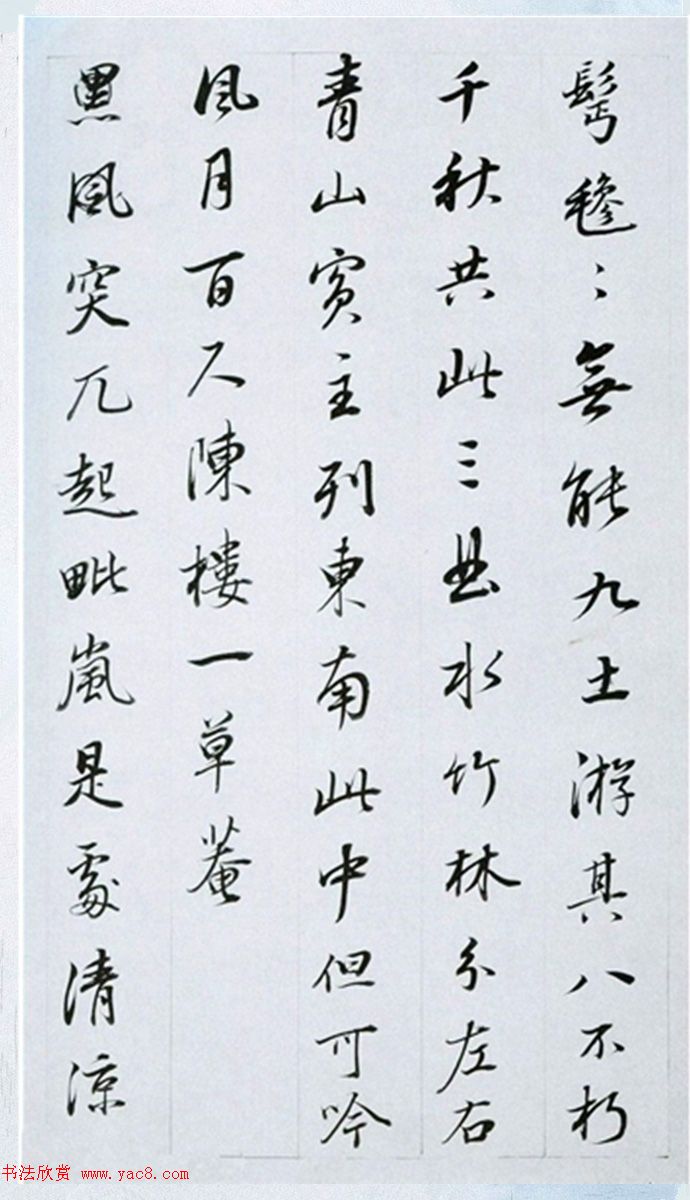 毿〻無能九土游其八不朽
千秋共此三曲水竹林分左右
青山賓主列東南此中但可吟
風月百尺陳樓一草菴
黑風突兀起毗嵐是處清涼
书法欣赏 www.yac8.com